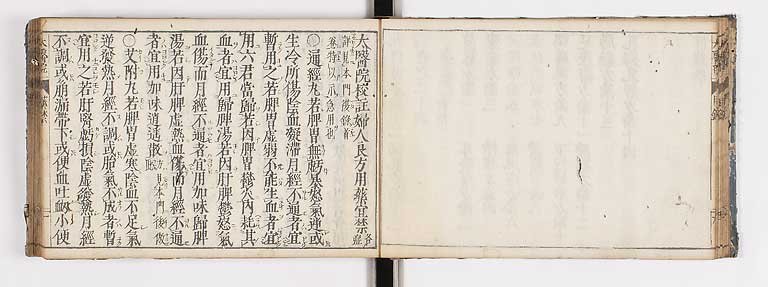 太醫院校註婦人良方用藥宜禁
詳見本門後餘
通經丸若脾胃無虧暴怒氣逆或
生冷所傷陰血凝滯月經不通者宜
暫用之若脾胃虛弱不能生血者宜
用六君當歸若因脾胃鬱火內耗其
血者宜用歸脾湯若因肝脾鬱怒氣
血傷而月經不通者宜用加味歸脾
湯若因肝脾虛熱血傷而月經不通
者宜用加味逍遙散
艾附丸若脾胃虛寒陰血不足氣
逆發熱月經不調或胎氣不成者暫
宜用之若肝腎虧損陰虛發熱月經
不調或崩漏帶下或便血吐衂小便